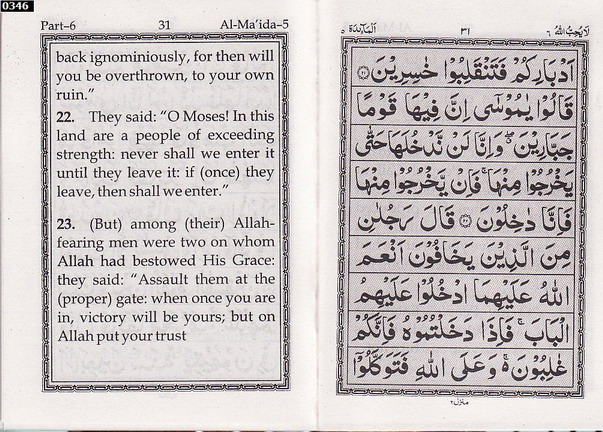 0346
Part-6 31 Al-Ma'ida-5
back ignominiously, for then will
you be overthrown, to your own
ruin.”
22. They said: “O Moses! In this
land are a people of exceeding
strength: never shall we enter it
until they leave it: if (once) they
leave, then shall we enter.”
23. (But) among (their) Allah-
fearing men were two on whom
Allah had bestowed His Grace:
they said: “Assault them at the
(proper) gate: when once you are
in, victory will be yours; but on
Allah put your trust
لَا يُحِبُّ اللهُ ٦ ٣١ اَلْمَآئِدَة ٥
اَدْبَارِكُمْ فَتَنْقَلِبُوْا خٰسِرِيْنَ ﴿٢١﴾
قَالُوْا يٰمُوْسٰٓى اِنَّ فِيْهَا قَوْمًا
جَبَّارِيْنَ ۖ وَاِنَّا لَنْ نَّدْخُلَهَا حَتّٰى
يَخْرُجُوْا مِنْهَا ۚ فَاِنْ يَّخْرُجُوْا مِنْهَا
فَاِنَّا دٰخِلُوْنَ ﴿٢٢﴾ قَالَ رَجُلٰنِ
مِنَ الَّذِيْنَ يَخَافُوْنَ اَنْعَمَ
اللهُ عَلَيْهِمَا ادْخُلُوْا عَلَيْهِمُ
الْبَابَ ۚ فَاِذَا دَخَلْتُمُوْهُ فَاِنَّكُمْ
غٰلِبُوْنَ ۚ وَعَلَى اللهِ فَتَوَكَّلُوْٓا
منزل ٢